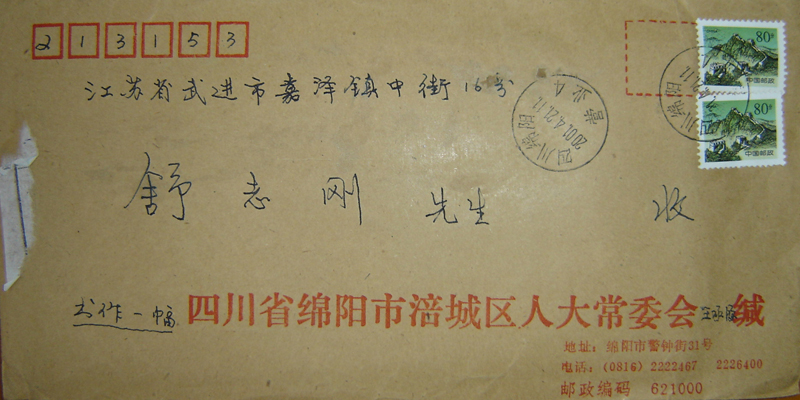 213153
80分
中国邮政
80分
中国邮政
江苏省武进市嘉泽镇中街16号
四川绵阳
2001.4.21.11
营业4
舒志刚 先生 收
书作一幅
四川省绵阳市涪城区人大常委会 缄
地址：绵阳市警钟街31号
电话：(0816) 2222467 2226400
邮政编码 621000